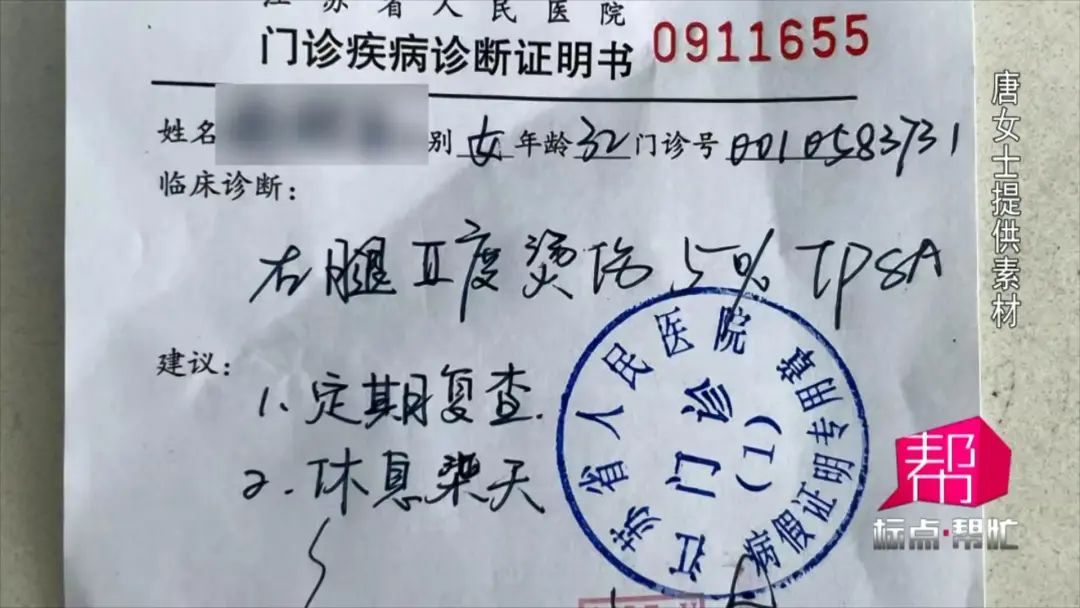 江苏省人民医院
门诊疾病诊断证明书 0911655
姓名 别 女 年龄 32 门诊号 0010583731
临床诊断：
右腿Ⅱ度烫伤 5% TPSA
建议：
1. 定期复查.
2. 休息 天
江苏省人民医院
门诊
(1)
病假证明专用章
唐女士提供素材
帮
标点·帮忙